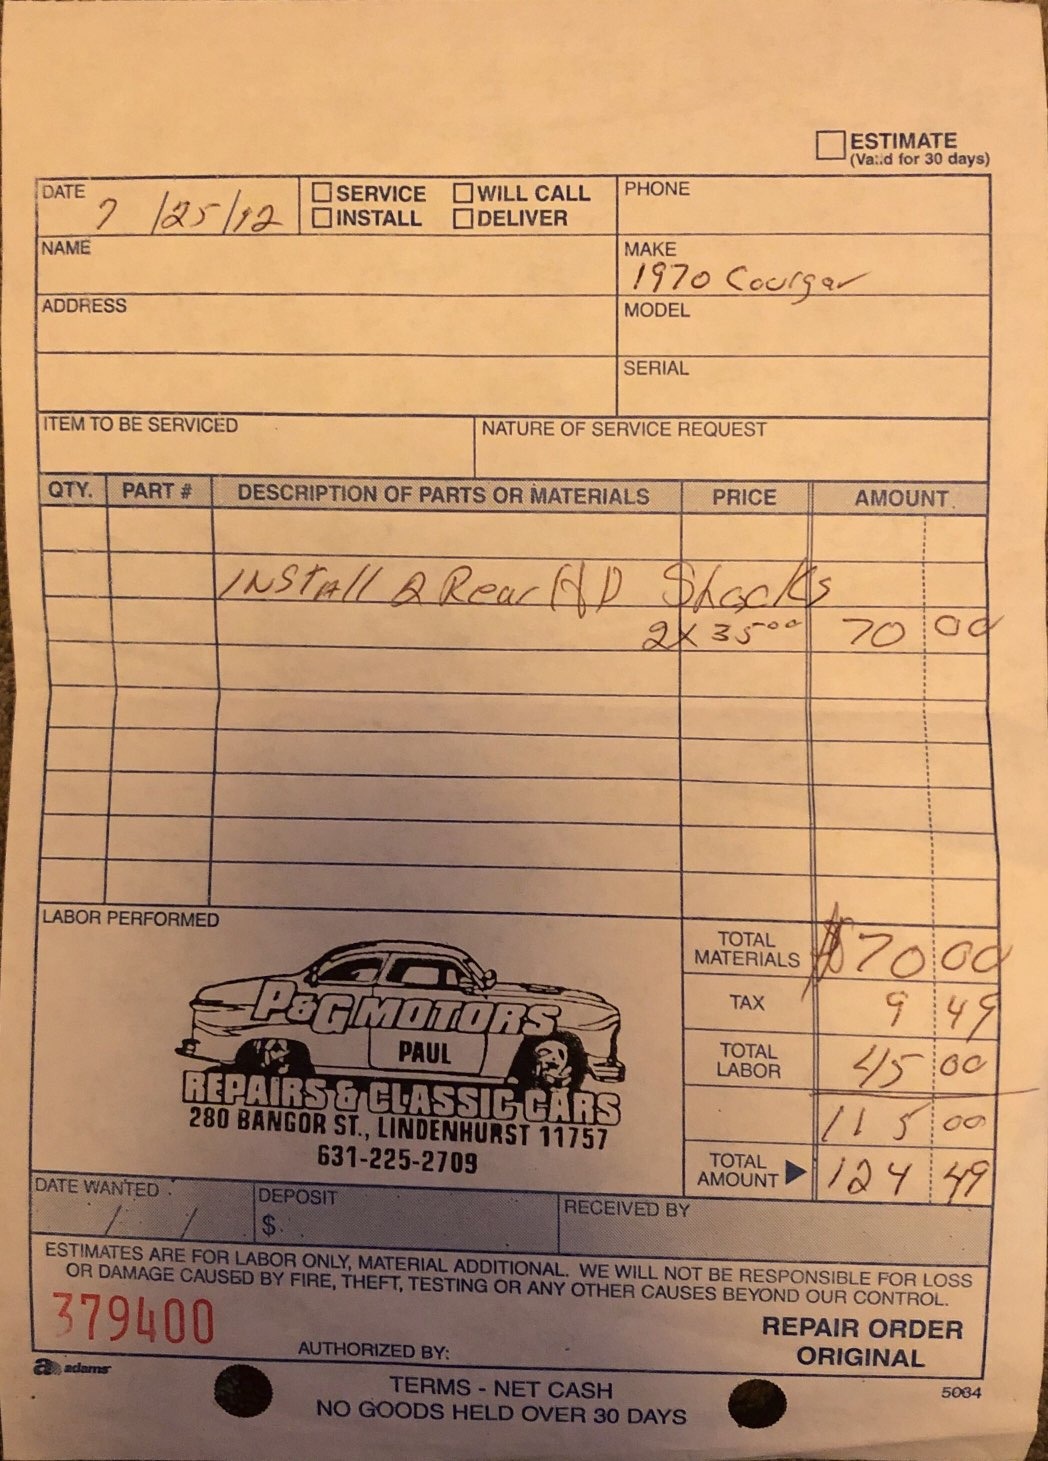 ESTIMATE
(Valid for 30 days)
DATE 7/25/12
SERVICE WILL CALL
INSTALL DELIVER
PHONE
NAME
MAKE
1970 Courgar
ADDRESS
MODEL
SERIAL
ITEM TO BE SERVICED
NATURE OF SERVICE REQUEST
QTY. PART # DESCRIPTION OF PARTS OR MATERIALS PRICE AMOUNT
INSTAll 2 Rear HD Shocks
2X 35 00 70 00
LABOR PERFORMED
TOTAL MATERIALS $70 00
TAX 9 49
TOTAL LABOR 45 00
115 00
TOTAL AMOUNT 124 49
P&G MOTORS
PAUL
REPAIRS & CLASSIC CARS
280 BANGOR ST., LINDENHURST 11757
631-225-2709
DATE WANTED / /
DEPOSIT
$
RECEIVED BY
ESTIMATES ARE FOR LABOR ONLY, MATERIAL ADDITIONAL. WE WILL NOT BE RESPONSIBLE FOR LOSS
OR DAMAGE CAUSED BY FIRE, THEFT, TESTING OR ANY OTHER CAUSES BEYOND OUR CONTROL.
379400
AUTHORIZED BY:
REPAIR ORDER
ORIGINAL
adams
5064
TERMS - NET CASH
NO GOODS HELD OVER 30 DAYS